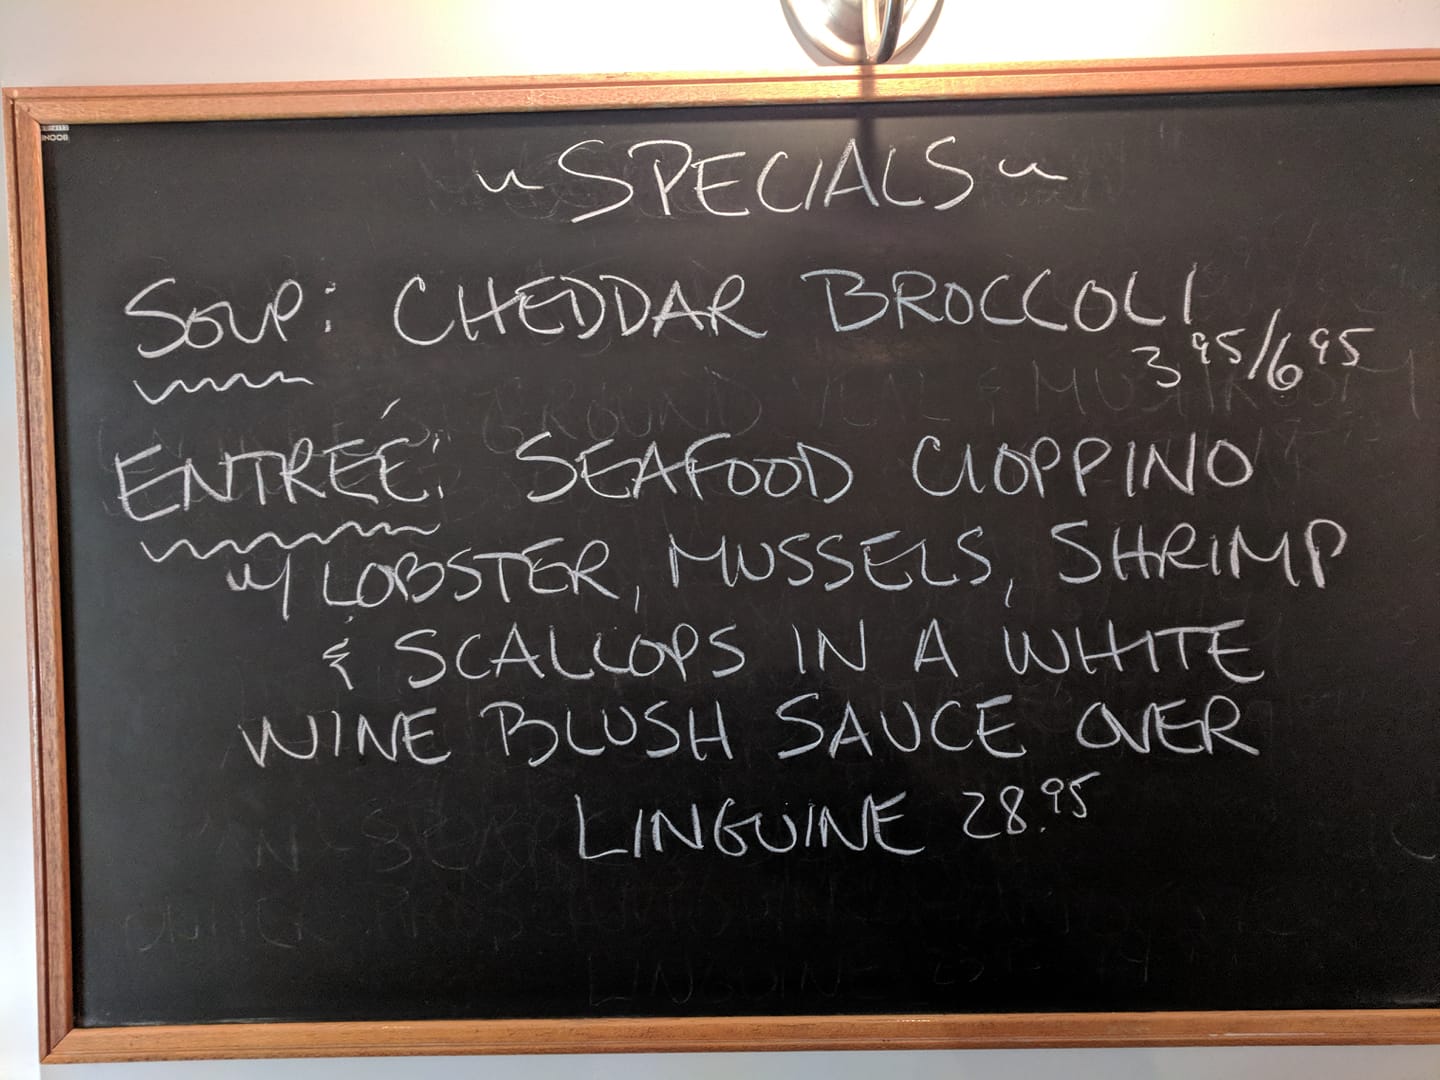 ~SPECIALS~
SOUP: CHEDDAR BROCCOLI
3.95/6.95
ENTREÉ: SEAFOOD CIOPPINO
w/ LOBSTER, MUSSELS, SHRIMP
& SCALLOPS IN A WHITE
WINE BLUSH SAUCE OVER
LINGUINE 28.95
LINGUINE